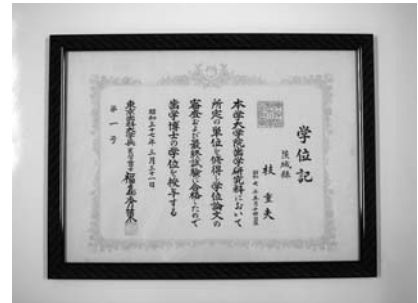 学位記
茨城縣
枝重夫
本学大学院歯学研究科において
所定の単位を修得し学位論文の
審査および最終試験に合格したので
歯学博士の学位を授与する
昭和三十七年三月三十一日
東京歯科大学長
第一号